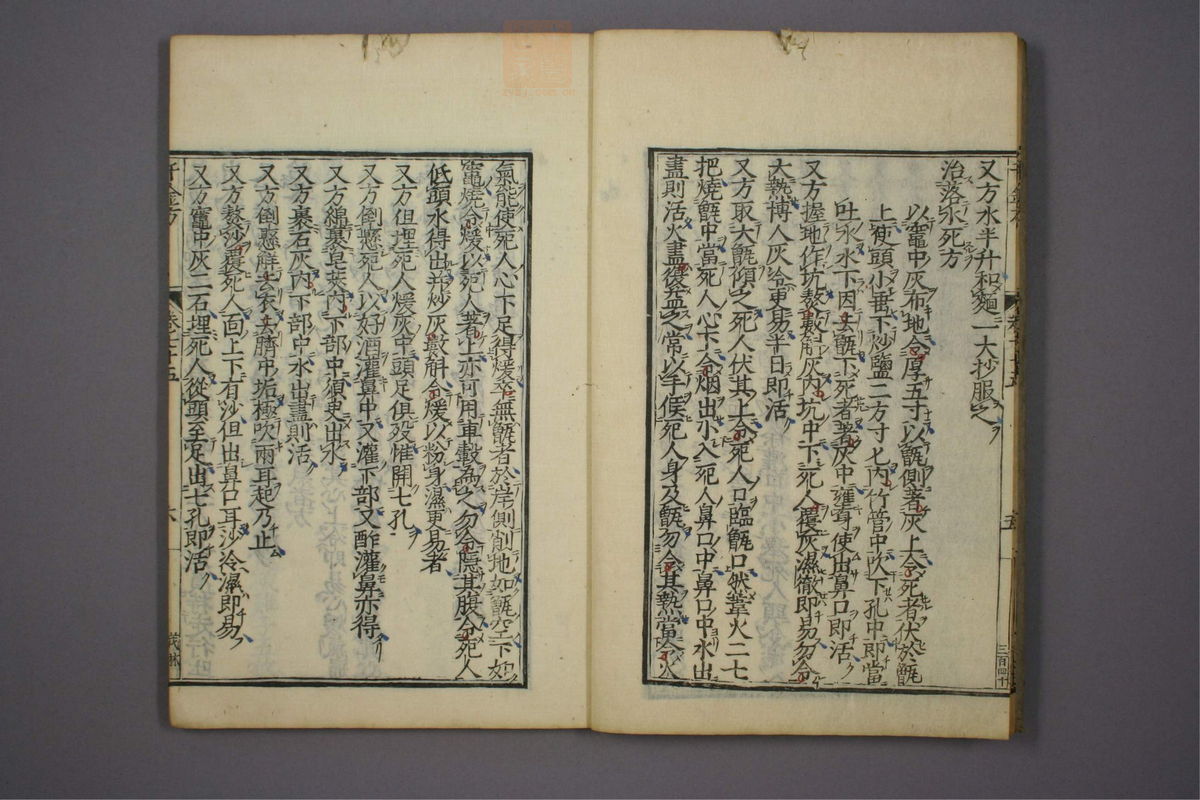 又方水半升和麵一大抄服之
治落水死方
以竈中灰布地令厚五寸以甑側著灰上令死者伏於甑
上使頭小垂下炒鹽二方寸匕內竹管中吹下孔中即當
吐水水下因去甑下死者著灰中壅身使出鼻口即活
又方掘地作坑熬數斛灰內坑中下死人覆灰濕徹即易勿令
大熱㷶人灰冷更易半日即活
又方取大甑傾之死人伏其上令死人口臨甑口然葦火二七
把燒甑中當死人心下令烟出小入死人鼻口中鼻口中水出
盡則活火盡復益之常以手候死人身及甑勿令其熱當令火
三百四十
氣能使死人心下足得煖卒無甑者於岸側削地如甑空下如
竈燒令煖以死人著上亦可用車轂為之勿令隱其腹令死人
低頭水得出并炒灰數斛令煖以粉身濕更易著
又方但埋死人煖灰中頭足俱沒惟開七孔
又方倒懸死人以好酒灌鼻中又灌下部又酢灌鼻亦得
又方綿裹皁莢內下部中須臾出水
又方裹石灰內下部中水出盡則活
又方倒懸解去衣去臍中垢極吹兩耳起乃止
又方熬沙覆死人面上下有沙但出鼻口耳沙冷濕即易
又方竈中灰二石埋死人從頭至足出七孔即活
千金方 卷二十五 六